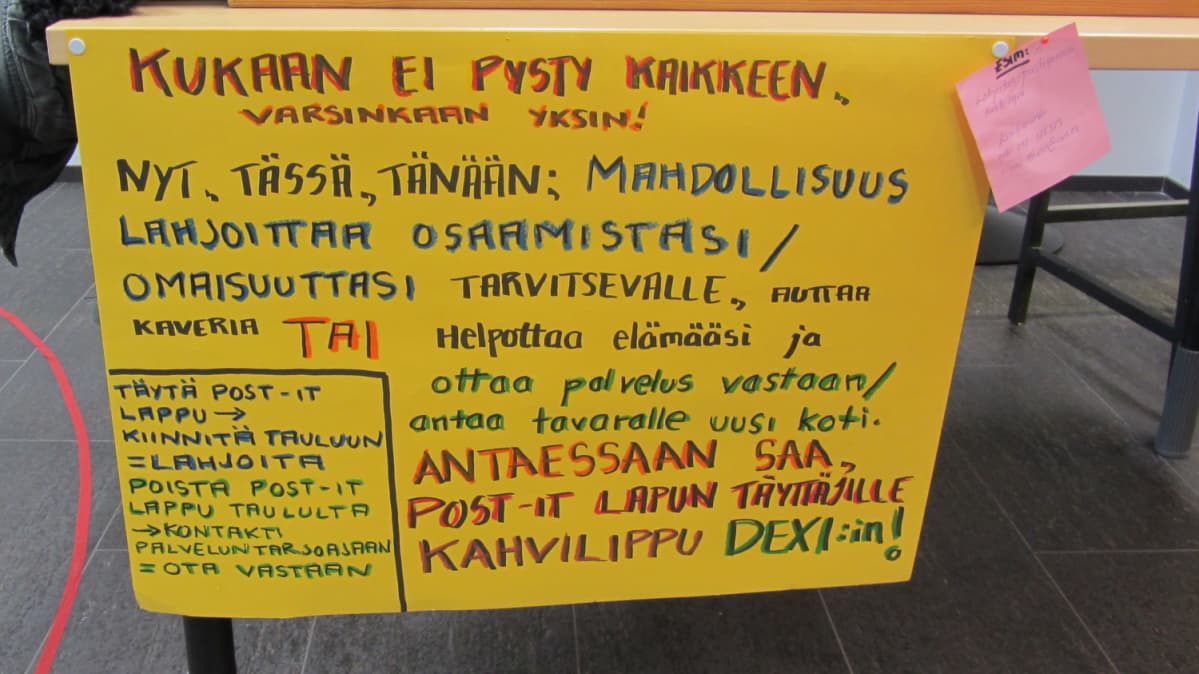 KUKAAN EI PYSTY KAIKKEEN,
VARSINKAAN YKSIN!
NYT, TÄSSÄ, TÄNÄÄN; MAHDOLLISUUS
LAHJOITTAA OSAAMISTASI/
OMAISUUTTASI TARVITSEVALLE, AUTTAA
KAVERIA TAI Helpottaa elämääsi ja
ottaa palvelus vastaan/
antaa tavaralle uusi koti.
ANTAESSAAN SAA,
POST-IT LAPUN TÄYTTÄJILLE
KAHVILIPPU DEXI:in!
TÄYTÄ POST-IT
LAPPU →
KIINNITÄ TAULUUN
=LAHJOITA
POISTA POST-IT
LAPPU TAULULTA
→KONTAKTI
PALVELUNTARJOAJAAN
=OTA VASTAAN
ESIM: